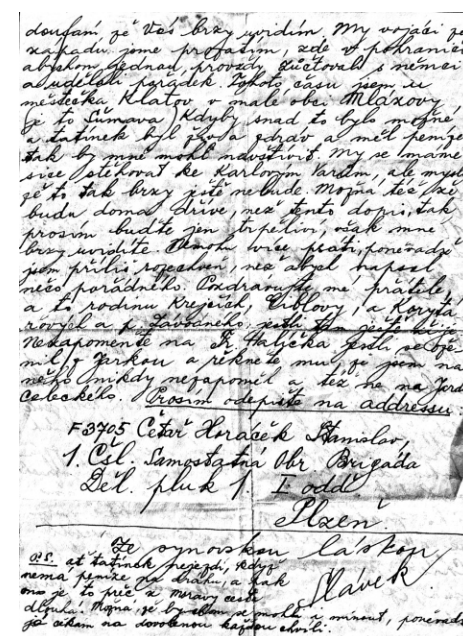 doufání, že Vás brzy uvidím. My vojáci ze
západu jsme prosím, zde v pohraničí
abychom jednou provždy zůčtovali s němci
a udělali pořádek. Tohoto času jsem u
městečka Klatov v malé obci Mlázovy
(je to Šumava) Kdyby snad to bylo možné,
a tatínek byl zdráv a měl peníze
tak by mně mohl navštívit. My se máme
sice stěhovat ke Karlovým Varům, ale mysl
že to tak brzy jistě nebude. Možná též že
budu doma dříve, než tento dopis, tak
prosím buďte jen trpěliví, však mne
brzy uvidíte. Nemohu více psáti, poněvadž
jsem příliš rozechvěn, než abych napsal
něco pořádného. Pozdravujte mé přátele,
a to rodinu Krejčích, a Koryta
rových a p. Závodného
Nezapomeňte na Fr. Halíčka jestli se ože
nil s Jerkou a řekněte mu, že jsem na
něho nikdy nezapoměl a též ne na Jard
Celeckého. Prosím odepište na addressu:
F3705 Četař Horáček Stanislav,
1. Čsl. Samostatná Obr. Brigáda
Děl. pluk 1. I odd.
Plzeň.
Ze synovskou láskou
Slávek
P.S. ať tatínek nejezdí, když
nemá peníze na dráhu, a pak
ono je to přec z Moravy cesta
dlouhá. Možná, že bychom se mohli minout, poněvadž
já čekám na dovolenou každou chvíli.